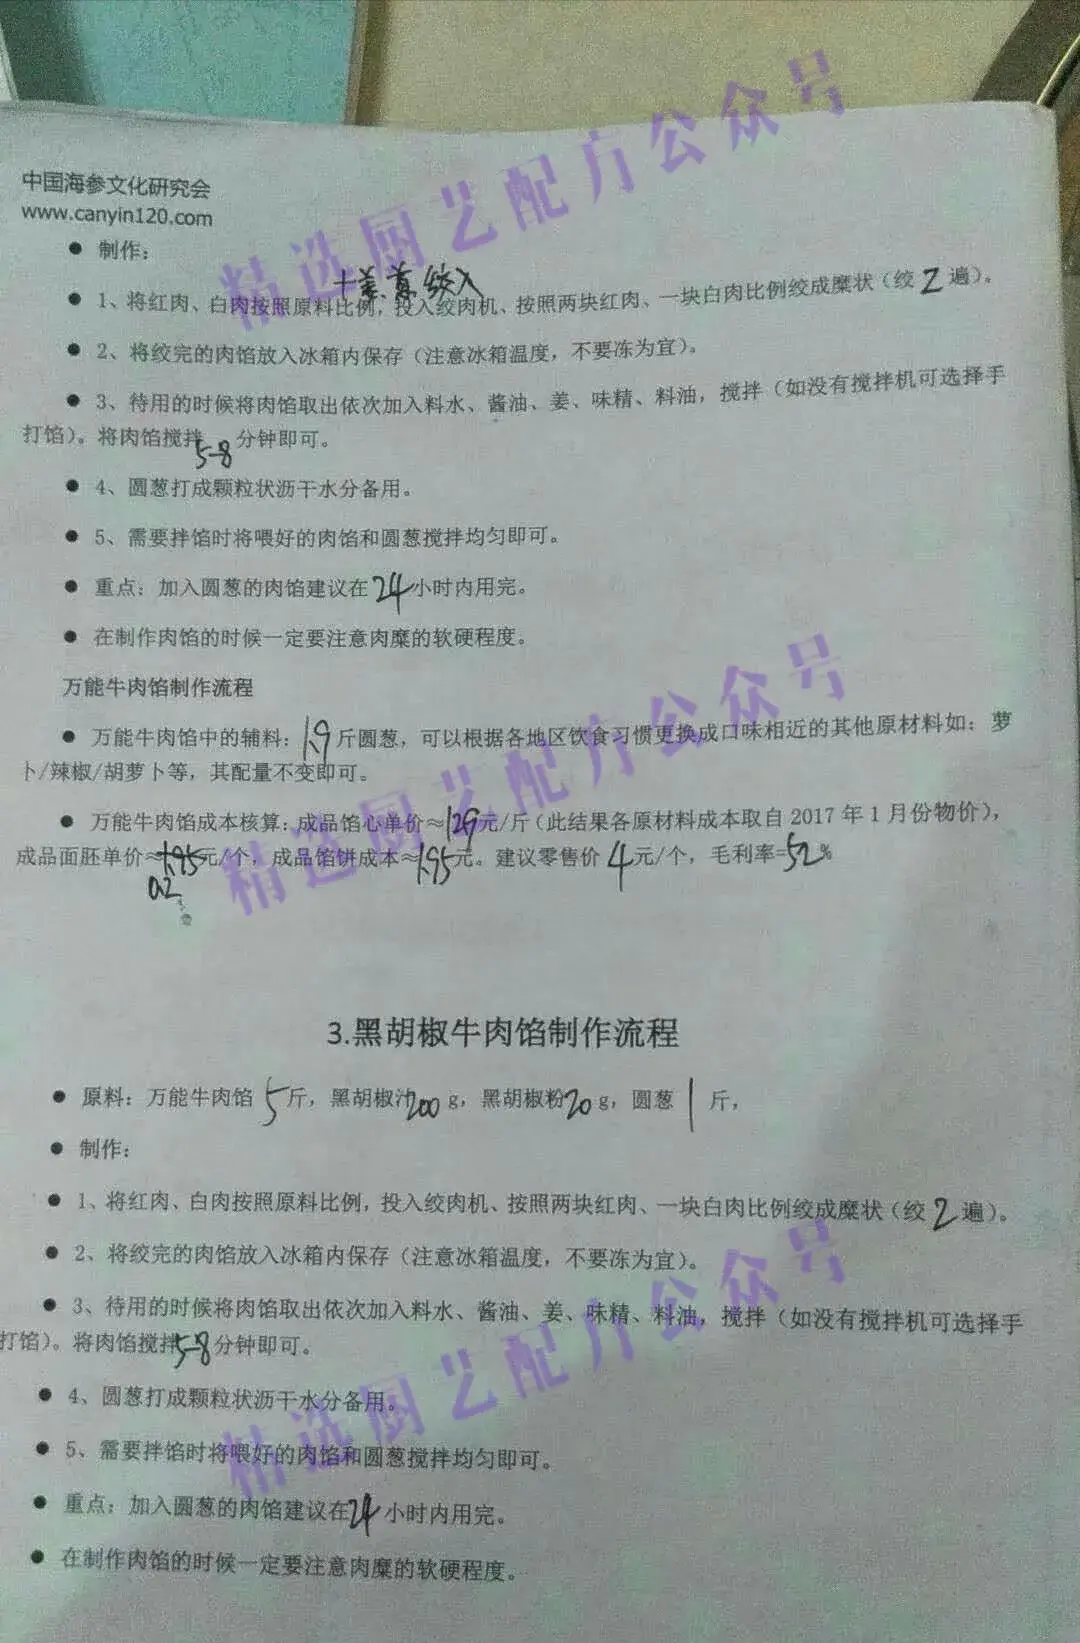 中国海参文化研究会
www.canyin120.com
● 制作：
十姜.葱.绞入
● 1、将红肉、白肉按照原料比例，投入绞肉机、按照两块红肉、一块白肉比例绞成糜状（绞 2 遍）。
● 2、将绞完的肉馅放入冰箱内保存（注意冰箱温度，不要冻为宜）。
● 3、待用的时候将肉馅取出依次加入料水、酱油、姜、味精、料油，搅拌（如没有搅拌机可选择手
打馅）。将肉馅搅拌 5-8 分钟即可。
● 4、圆葱打成颗粒状沥干水分备用。
● 5、需要拌馅时将喂好的肉馅和圆葱搅拌均匀即可。
● 重点：加入圆葱的肉馅建议在 24 小时内用完。
● 在制作肉馅的时候一定要注意肉糜的软硬程度。
万能牛肉馅制作流程
● 万能牛肉馅中的辅料：1.9 斤圆葱，可以根据各地区饮食习惯更换成口味相近的其他原材料如：萝
卜/辣椒/胡萝卜等，其配量不变即可。
● 万能牛肉馅成本核算：成品馅心单价≈129元/斤（此结果各原材料成本取自 2017 年 1 月份物价），
成品面胚单价≈1.95元/个，成品馅饼成本≈1.95元。建议零售价 4 元/个，毛利率=52%
0.2
3.黑胡椒牛肉馅制作流程
● 原料：万能牛肉馅 5 斤，黑胡椒汁200 g，黑胡椒粉20 g，圆葱 1 斤，
● 制作：
● 1、将红肉、白肉按照原料比例，投入绞肉机、按照两块红肉、一块白肉比例绞成糜状（绞 2 遍）。
● 2、将绞完的肉馅放入冰箱内保存（注意冰箱温度，不要冻为宜）。
● 3、待用的时候将肉馅取出依次加入料水、酱油、姜、味精、料油，搅拌（如没有搅拌机可选择手
打馅）。将肉馅搅拌5-8 分钟即可。
● 4、圆葱打成颗粒状沥干水分备用。
● 5、需要拌馅时将喂好的肉馅和圆葱搅拌均匀即可。
● 重点：加入圆葱的肉馅建议在24 小时内用完。
● 在制作肉馅的时候一定要注意肉糜的软硬程度。
精选厨艺配方公众号
精选厨艺配方公众号
精选厨艺配方公众号